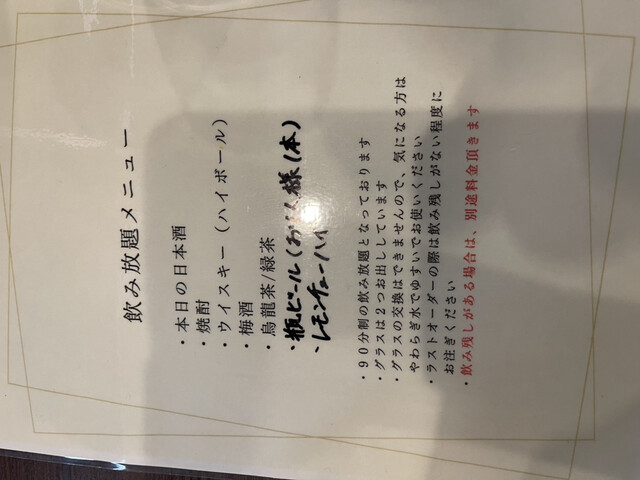 飲み放題メニュー
・本日の日本酒
・焼酎
・ウイスキー（ハイボール）
・梅酒
・烏龍茶/緑茶
・瓶ビール(お一人様1本)
・レモンチューハイ
・90分制の飲み放題となっております
・グラスは2つお出ししています
・グラスの交換はできませんので、気になる方は
やわらぎ水でゆすいでお使いください
・ラストオーダーの際は飲み残しがない程度に
お注ぎください
・飲み残しがある場合は、別途料金頂きます